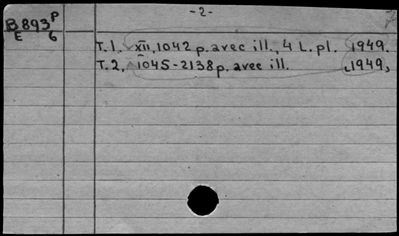 -2-
B893 P
E 6
T.1. XII, 1042 p. avec ill., 4 L. pl. 1949.
T.2. 1045-2138 p. avec ill. [1949]